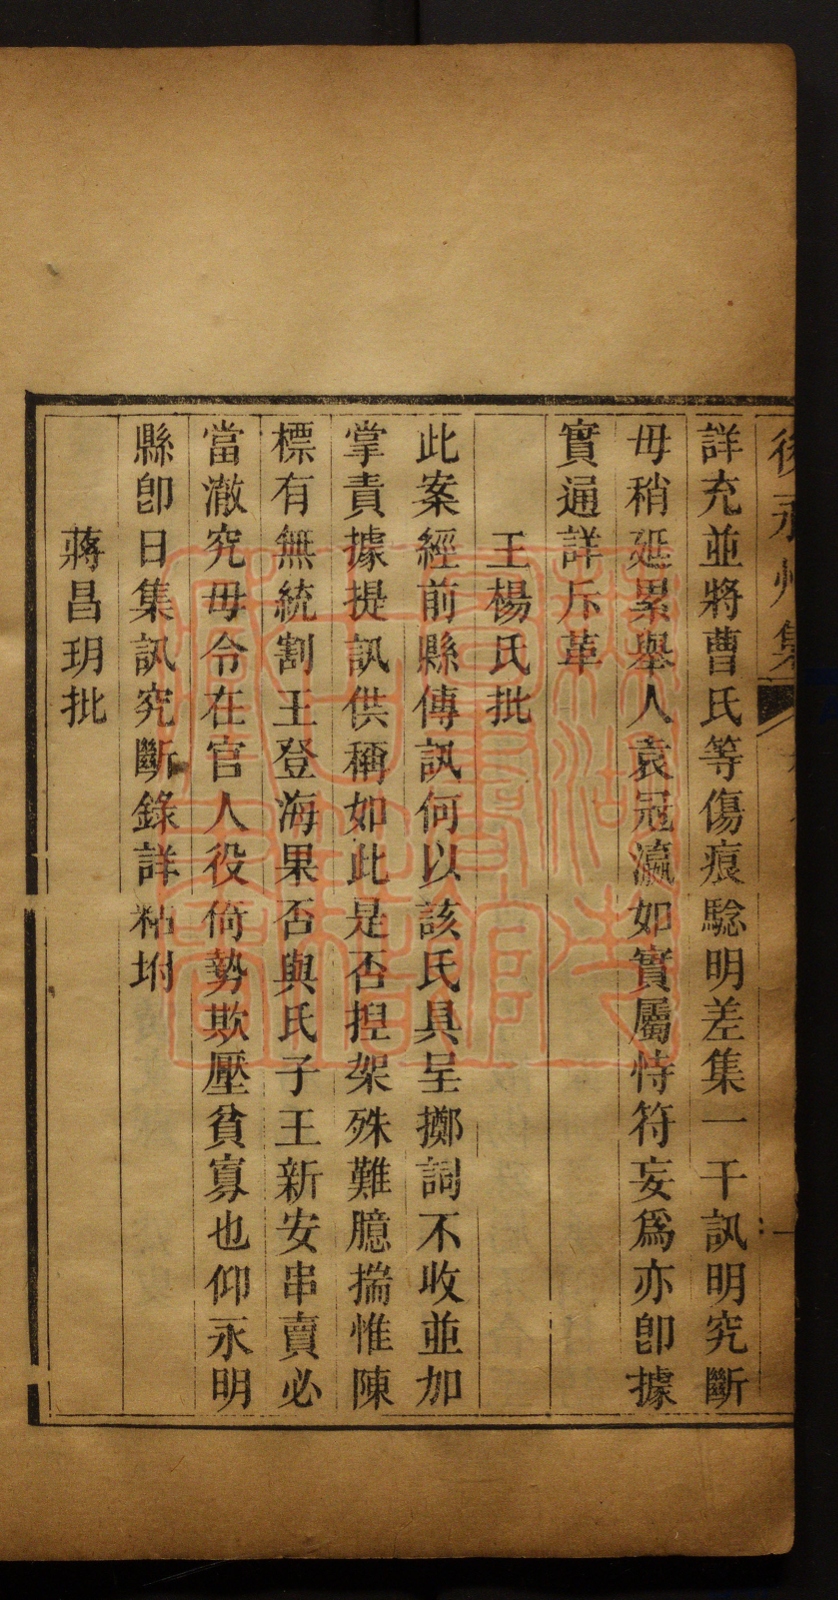 後永州集
詳充並將曹氏等傷痕驗明差集一干訊明究斷
毋稍延累舉人袁冠瀛如實屬恃符妄爲亦卽據
實通詳斥革
王楊氏批
此案經前縣傳訊何以該氏具呈擲詞不收並加
掌責據提訊供稱如此是否捏架殊難臆揣惟陳
標有無統割王登海果否與氏子王新安串賣必
當澈究毋令在官人役倚勢欺壓貧寡也仰永明
縣卽日集訊究斷錄詳粘坿
蔣昌玥批